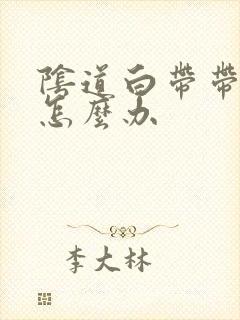 陰道白帶帶
怎麼办
李大林